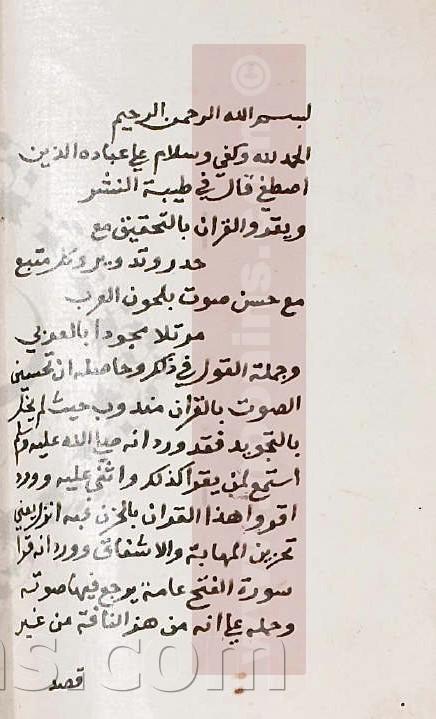 بسم الله الرحمن الرحيم
الحمد لله وكفى وسلام على عباده الذين
اصطفى قال في طيبة النشر
ويقرو القران بالتحقيق مع
حدر وتدوير وكل متبع
مع حسن صوت بلحون العرب
مرتلا مجودا بالعربي
وجملة القول في ذلك وحاصله ان تحسين
الصوت بالقران مندوب حيث لم يخل
بالتجويد فقد ورد انه صلى الله عليه وسلم
استمع لمن يقرا كذلك واثنى عليه وورد
اقروا هذا القران بالحزن فبه انزل يعني
تحزين المهابة والاشفاق وورد انه قرا
سورة الفتح عامة يرجع فيها صوته
وحمله على انه من هز الناقة من غير
قصد
ns.com